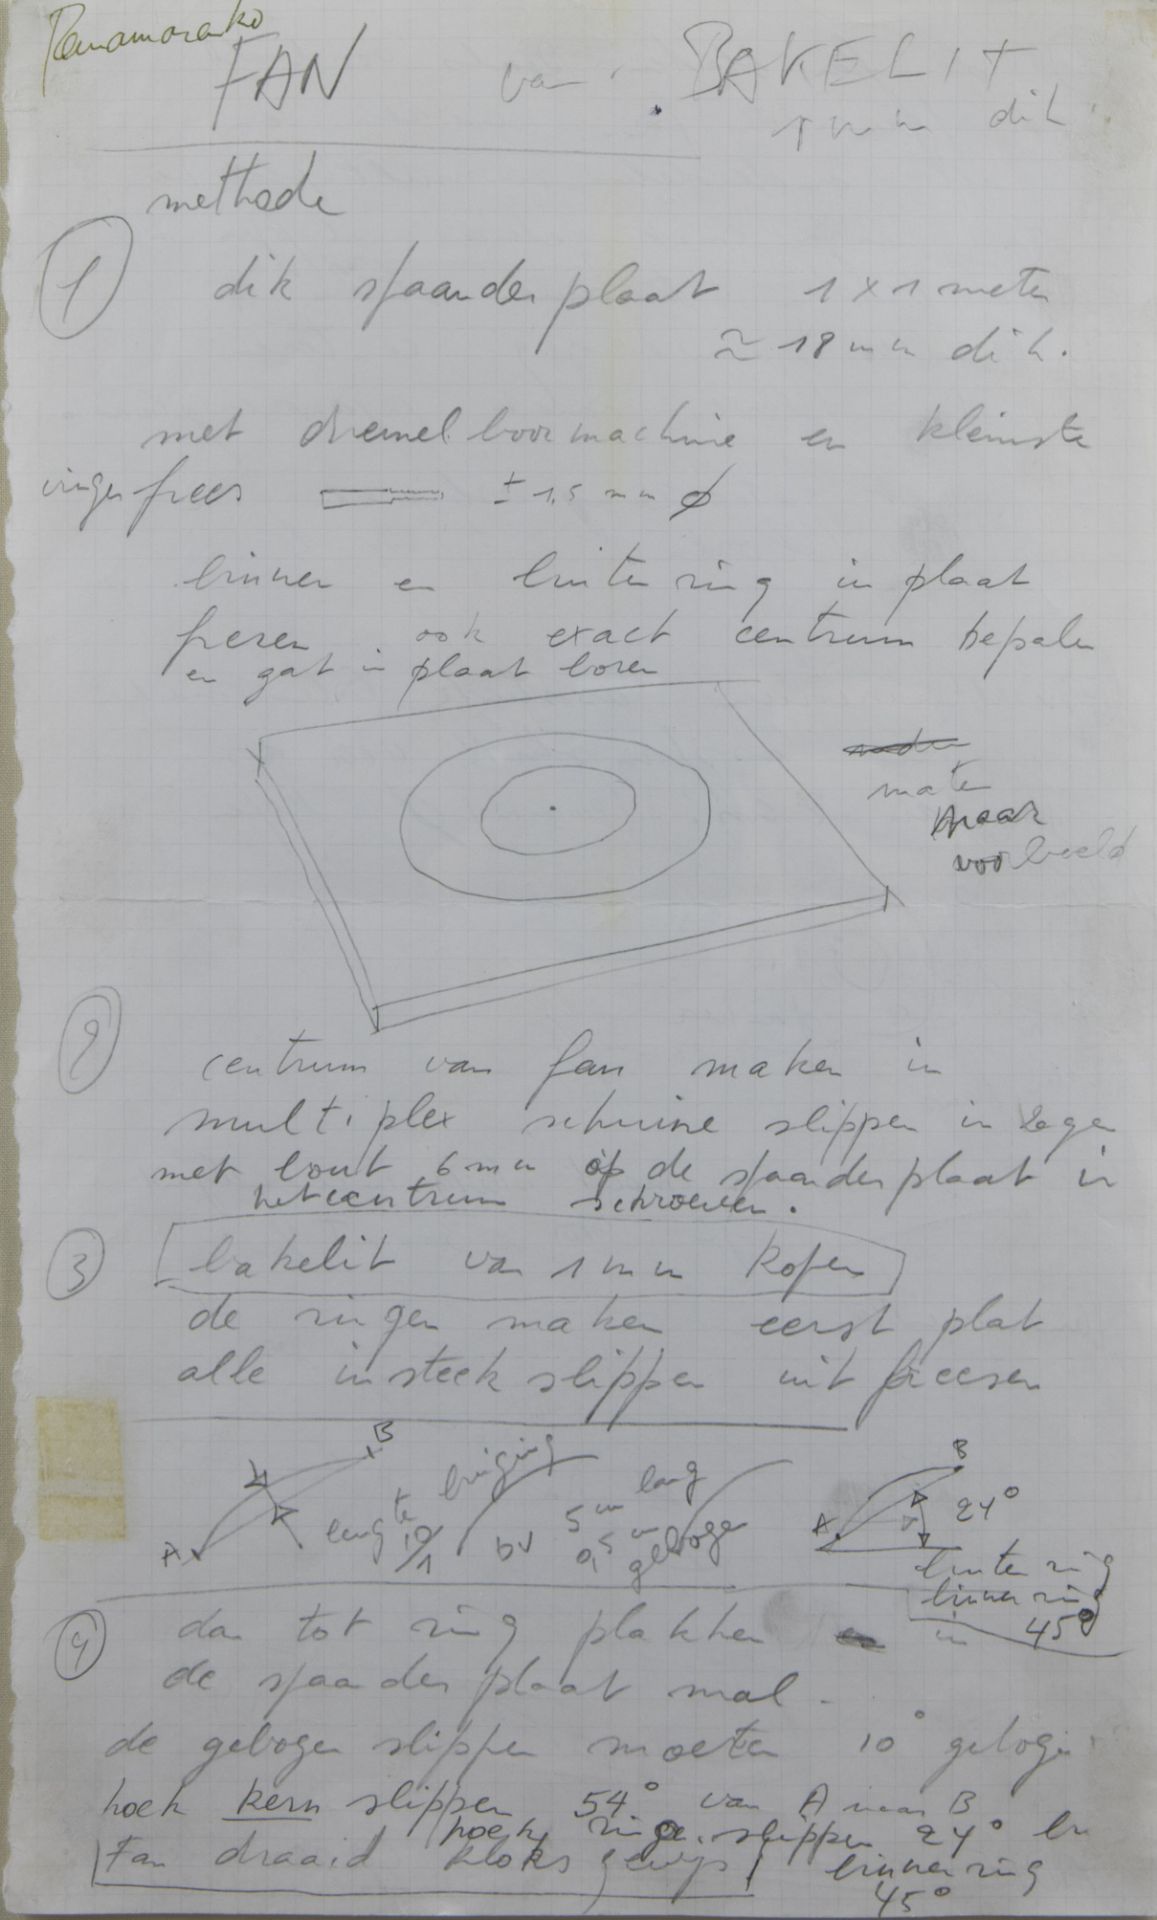 Panamarenko
FAN van BAKELIT
1 mm dik
methode
1 dik spaanderplaat 1 x 1 meter
≈ 18 mm dik.
met dremel boormachine en kleinste
vingerfrees ± 1,5 mm ø
binnen en buiten ring in plaat
frezen ook exact centrum bepalen
en gat in plaat boren
maten
naar
voorbeeld
2
centrum van fan maken in
multiplex schuine slippen in zagen
met bout 6 mm op de spaanderplaat in
het centrum schroeven.
3 bakelit van 1 mm kopen
de ringen maken eerst plat
alle insteek slippen uit freesen
A B
lengte 10/1
buiging
bv 5 m lang
0,5 m geboge
A B 24°
buiten ring
binnen ring
45°
4 dan tot ring plakken in
de spaanderplaat mal.
de geboge slippen moeten 10° geboge
hoek kern slippen 54° van A naar B
hoek ringe slippen 24° en
Fan draaid kloks gewijs! binnen ring
45°